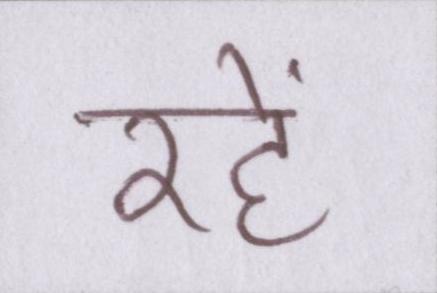 रहें